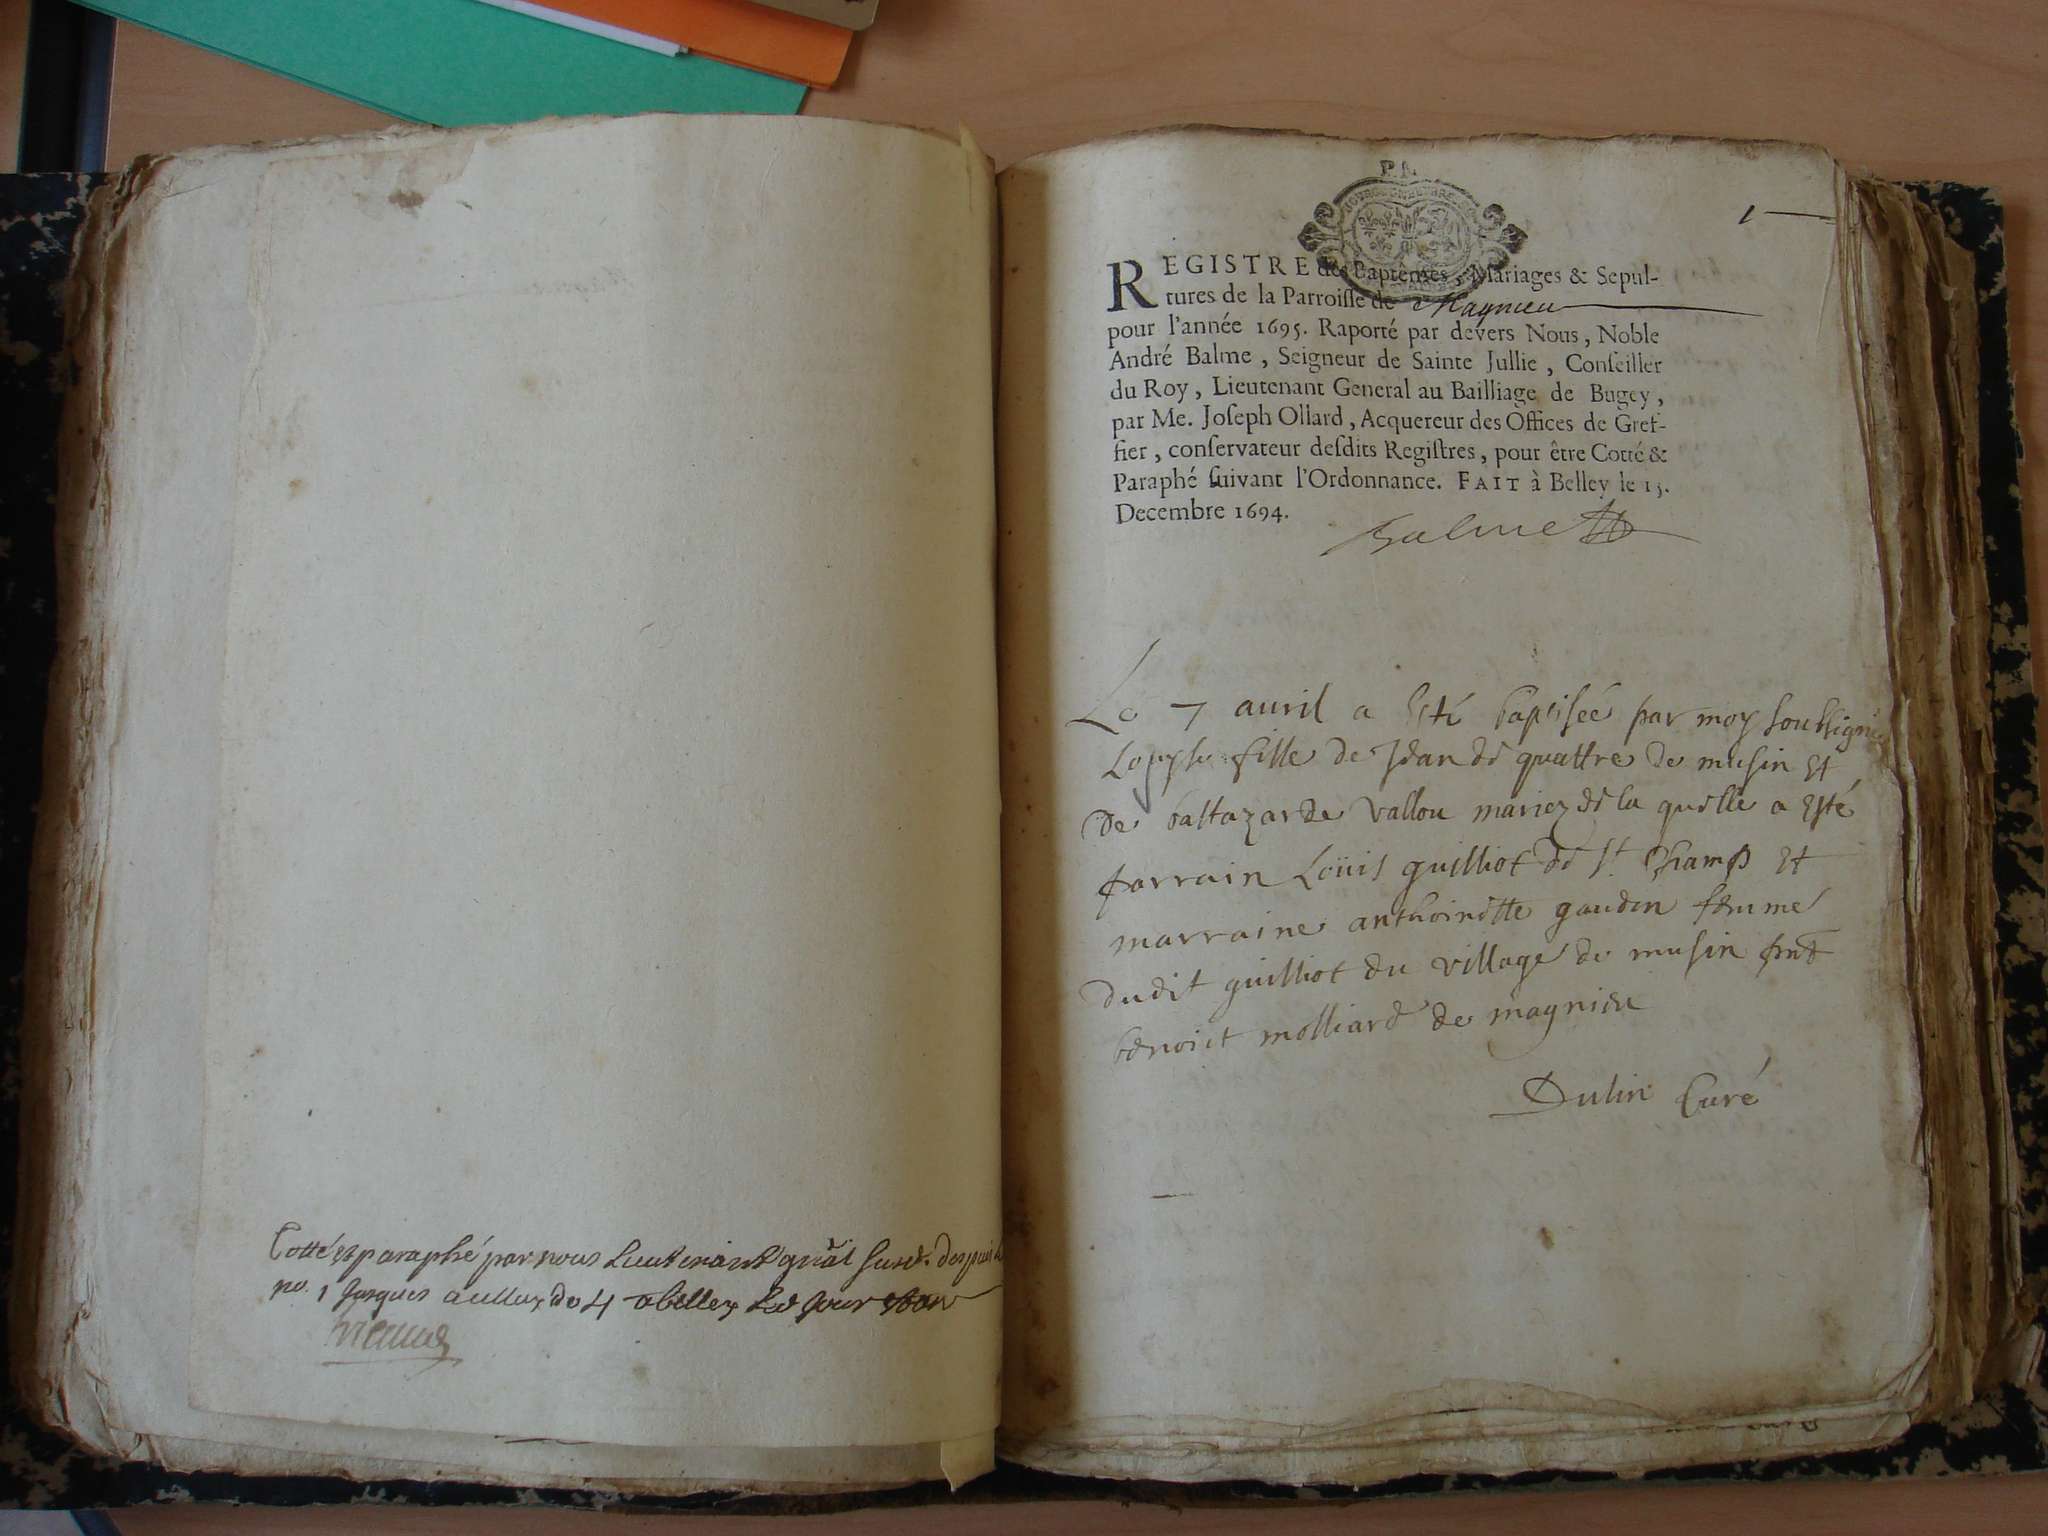 Cotté et paraphé par nous Lieutenant gnâl susd. despuis le
no. 1 jusques a celluy de 4 a belley led jour
1
REGISTRE des Baptêmes, Mariages & Sepul-
tures de la Parroisse de Magnieu
pour l'année 1695. Raporté par devers Nous, Noble
André Balme, Seigneur de Sainte Jullie, Conseiller
du Roy, Lieutenant General au Bailliage de Bugey,
par Me. Joseph Ollard, Acquereur des Offices de Gref-
fier, conservateur desdits Registres, pour être Cotté &
Paraphé suivant l'Ordonnance. FAIT à Belley le 15.
Decembre 1694.
Balme
Le 7 auril a esté baptisée par moy soubsigné
Loyse fille de Jean de quattre de musin et
de baltazarde vallou mariez de la quelle a esté
parrain Loüis guilliot de st. Champ et
marraine anthoinette gaudin femme
dudit guilliot du village de musin pnt
benoict molliard de magnieu
Dulin Curé